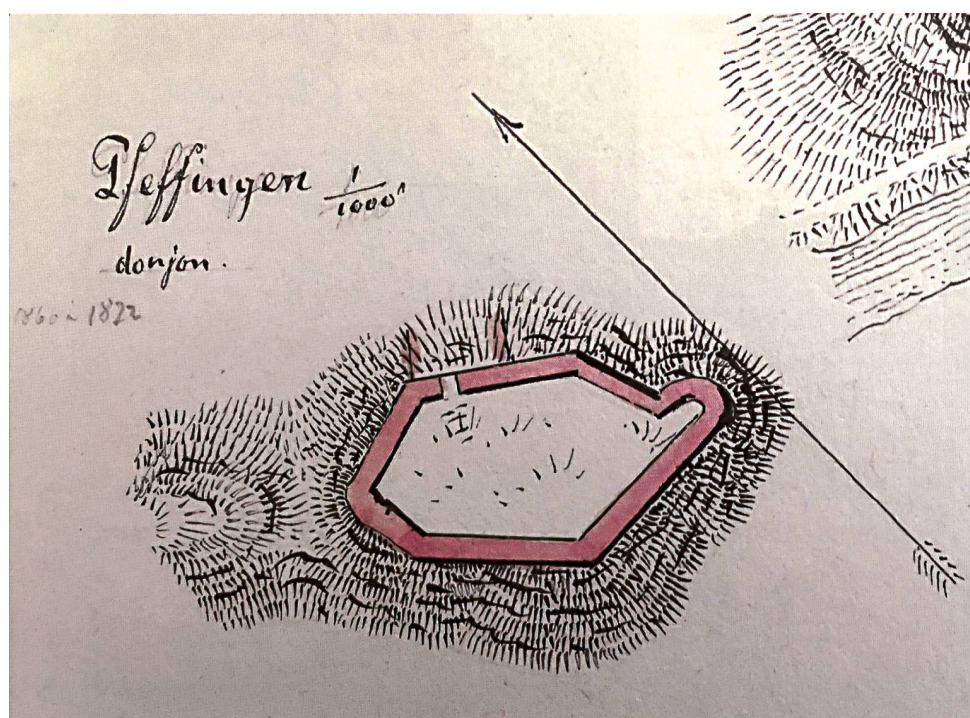 Pfeffingen 1/1000
donjon.
1860 à 1822